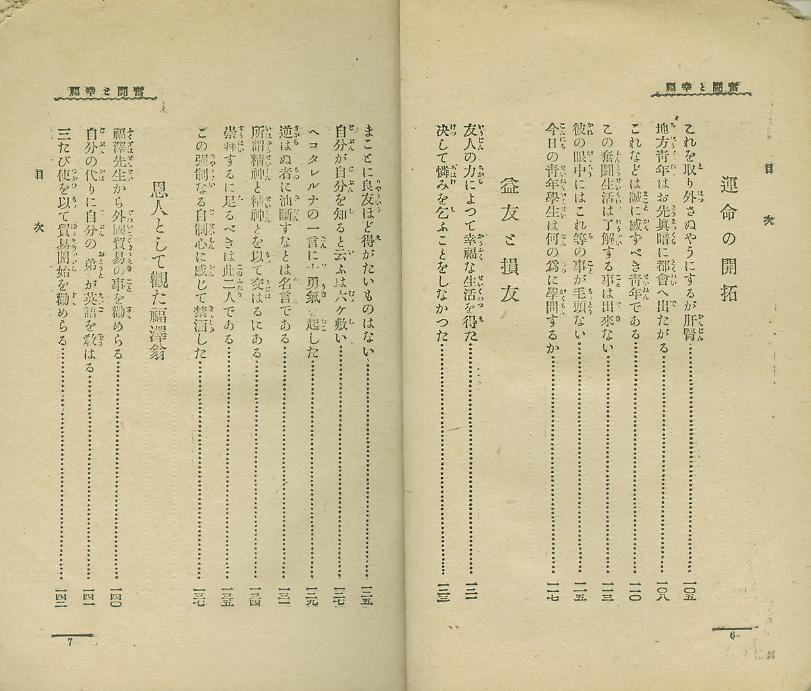 奮鬪と幸福
目次
運命の開拓
これを取り外さぬやうにするが肝腎……一〇五
地方青年はお先眞暗に都會へ出たがる……一〇八
これなどは誠に感ずべき青年である……一一〇
この奮鬪生活は了解する事は出來ない……一一三
彼の眼中にはこれ等の事が毛頭ない……一一五
今日の青年學生は何の爲に學問するか……一一七
益友と損友
友人の力によつて幸福な生活を得た……一二一
決して憐みを乞ふことをしなかつた……一二三
6
奮鬪と幸福
まことに良友ほど得がたいものはない……一二五
自分が自分を知ると云ふは六ケ敷い……一二七
ヘコタレルナの一言に十勇氣を起した……一二九
逆はぬ者に油斷すなとは名言である……一三一
所謂精神と精神とを以て交はるにある……一三四
崇拜するに足るべきは此二人である……一三五
この强制なる自制心に感じて禁酒した……一三七
恩人として觀た福澤翁
福澤先生から外國貿易の事を勸めらる……一四〇
自分の代りに自分の弟が英語を敎はる……一四一
三たび使を以て貿易開始を勸めらる……一四二
目次
7